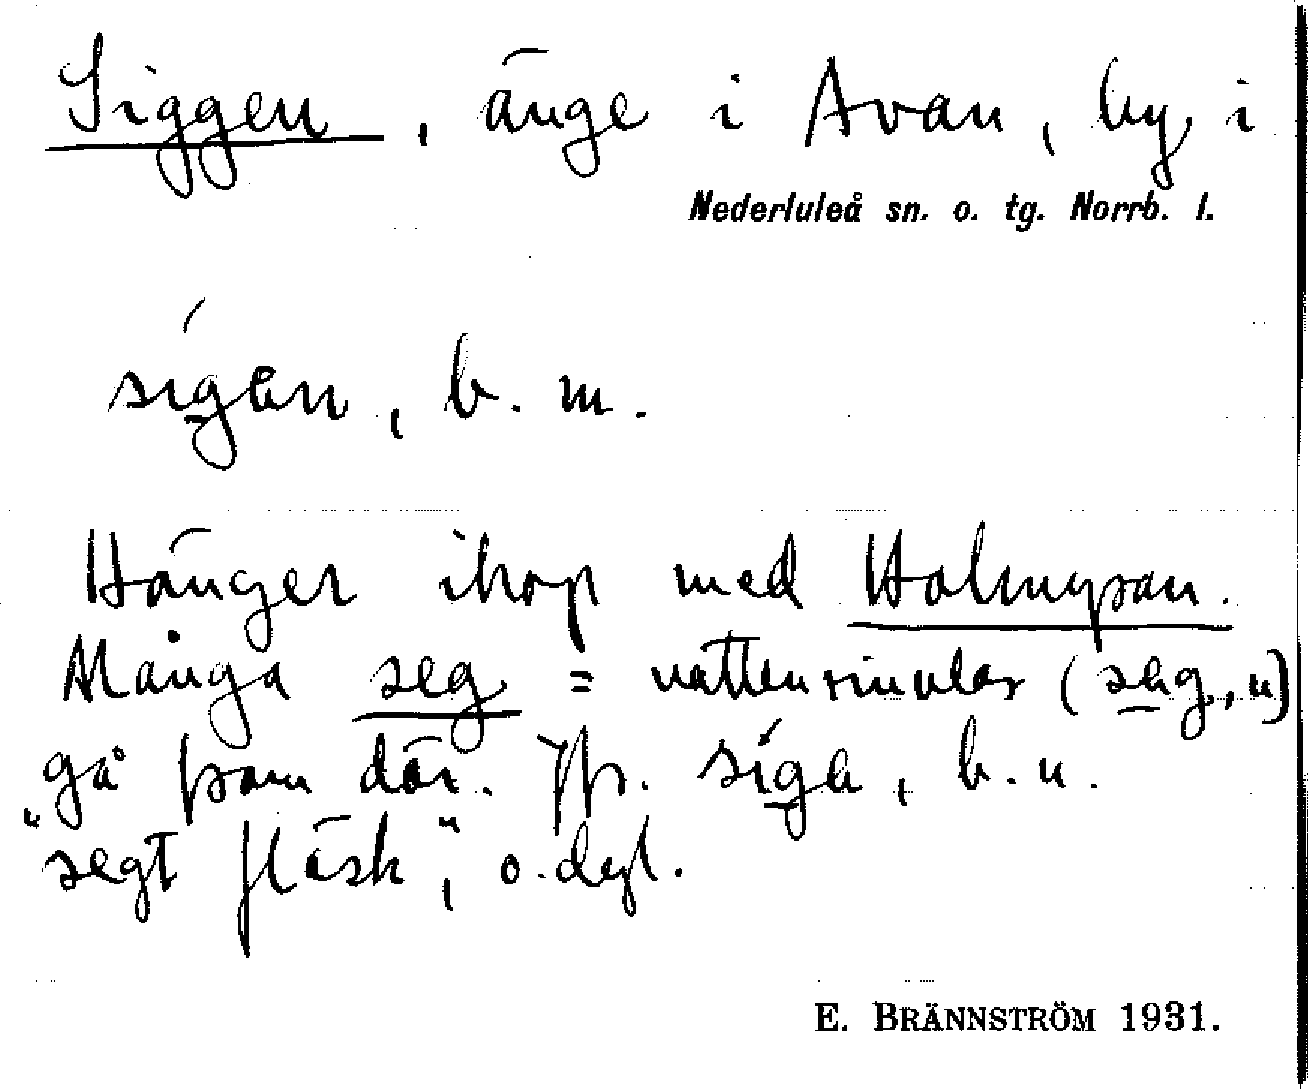 Siggen, änge i Avan, by i
Nederluleå sn. o. tg. Norrb. l.
sígen, b. m.
Hänger ihop med Holmysan.
Många seg = vattenrinnlar (seg, n)
gå fram där. Jfr. síga, b. n.
"segt fläsk", o. dyl.
E. BRÄNNSTRÖM 1931.